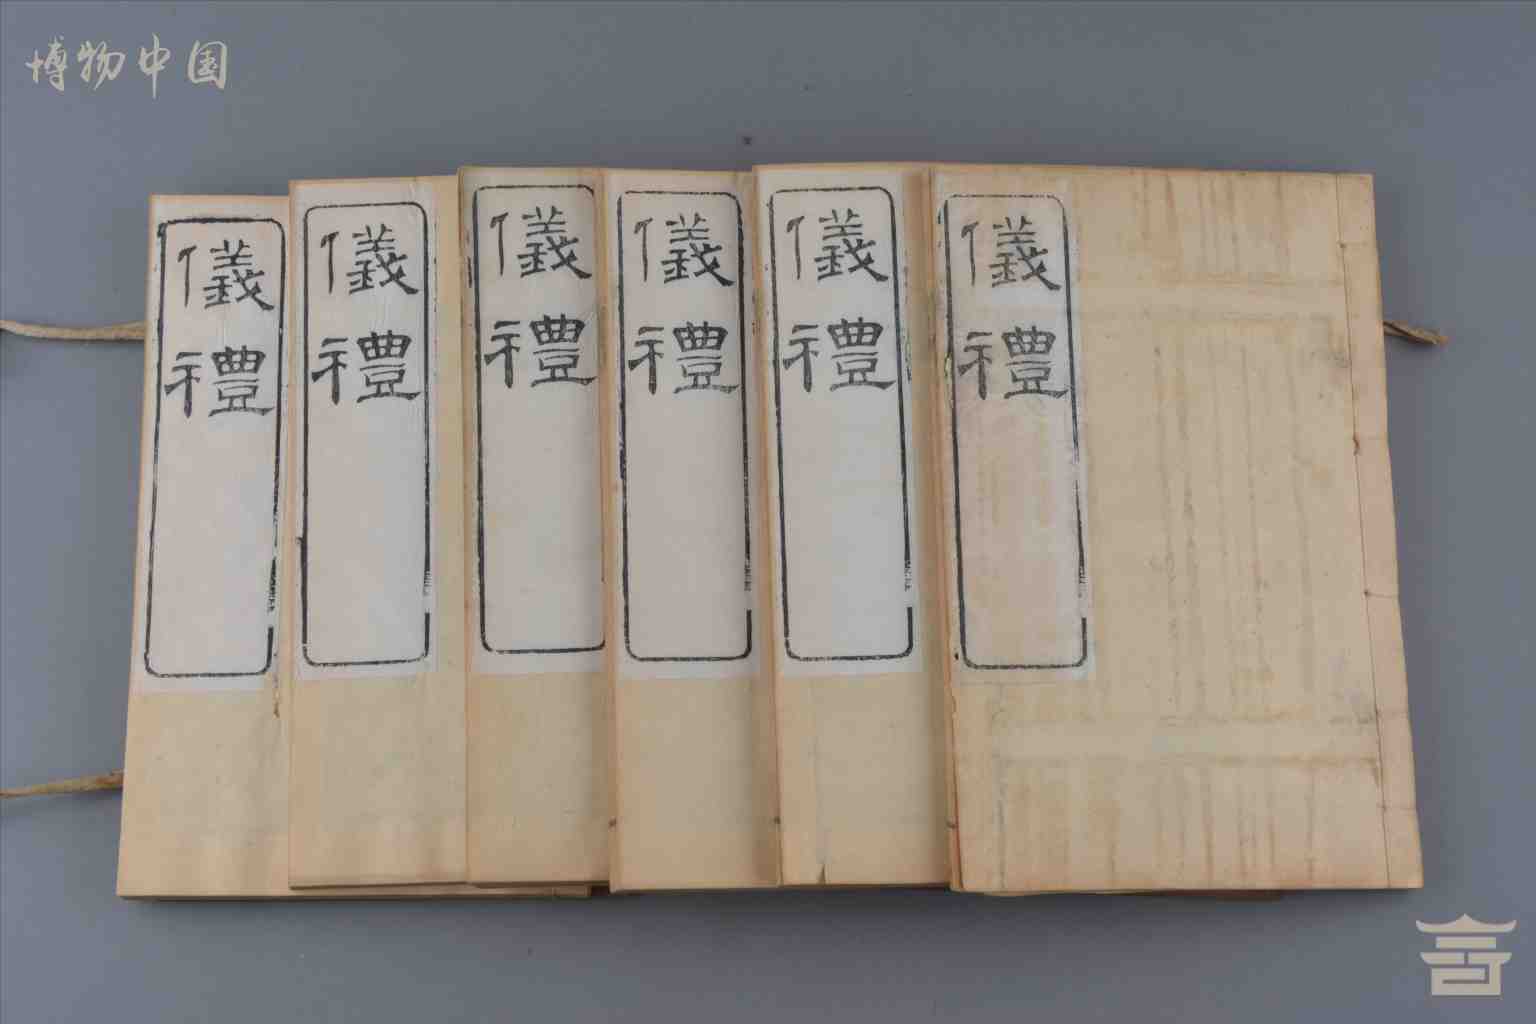 博物中国
儀禮
儀禮
儀禮
儀禮
儀禮
儀禮